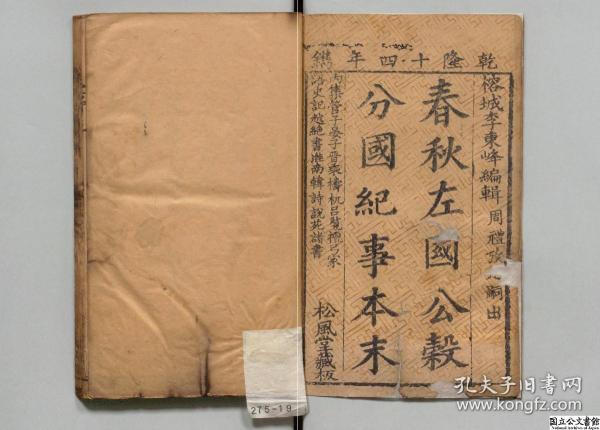 乾隆十四年鐫
榕城李東峰編輯 周禮 嗣出
春秋左國公穀
分國紀事本末
內集管子晏子晉乘檮杌呂覽檀弓家
語史記越絕書淮南韓詩說苑諸書
松風堂藏板
275-19
孔夫子旧书网
www.kongfz.com
国立公文書館
National Archives of Japan